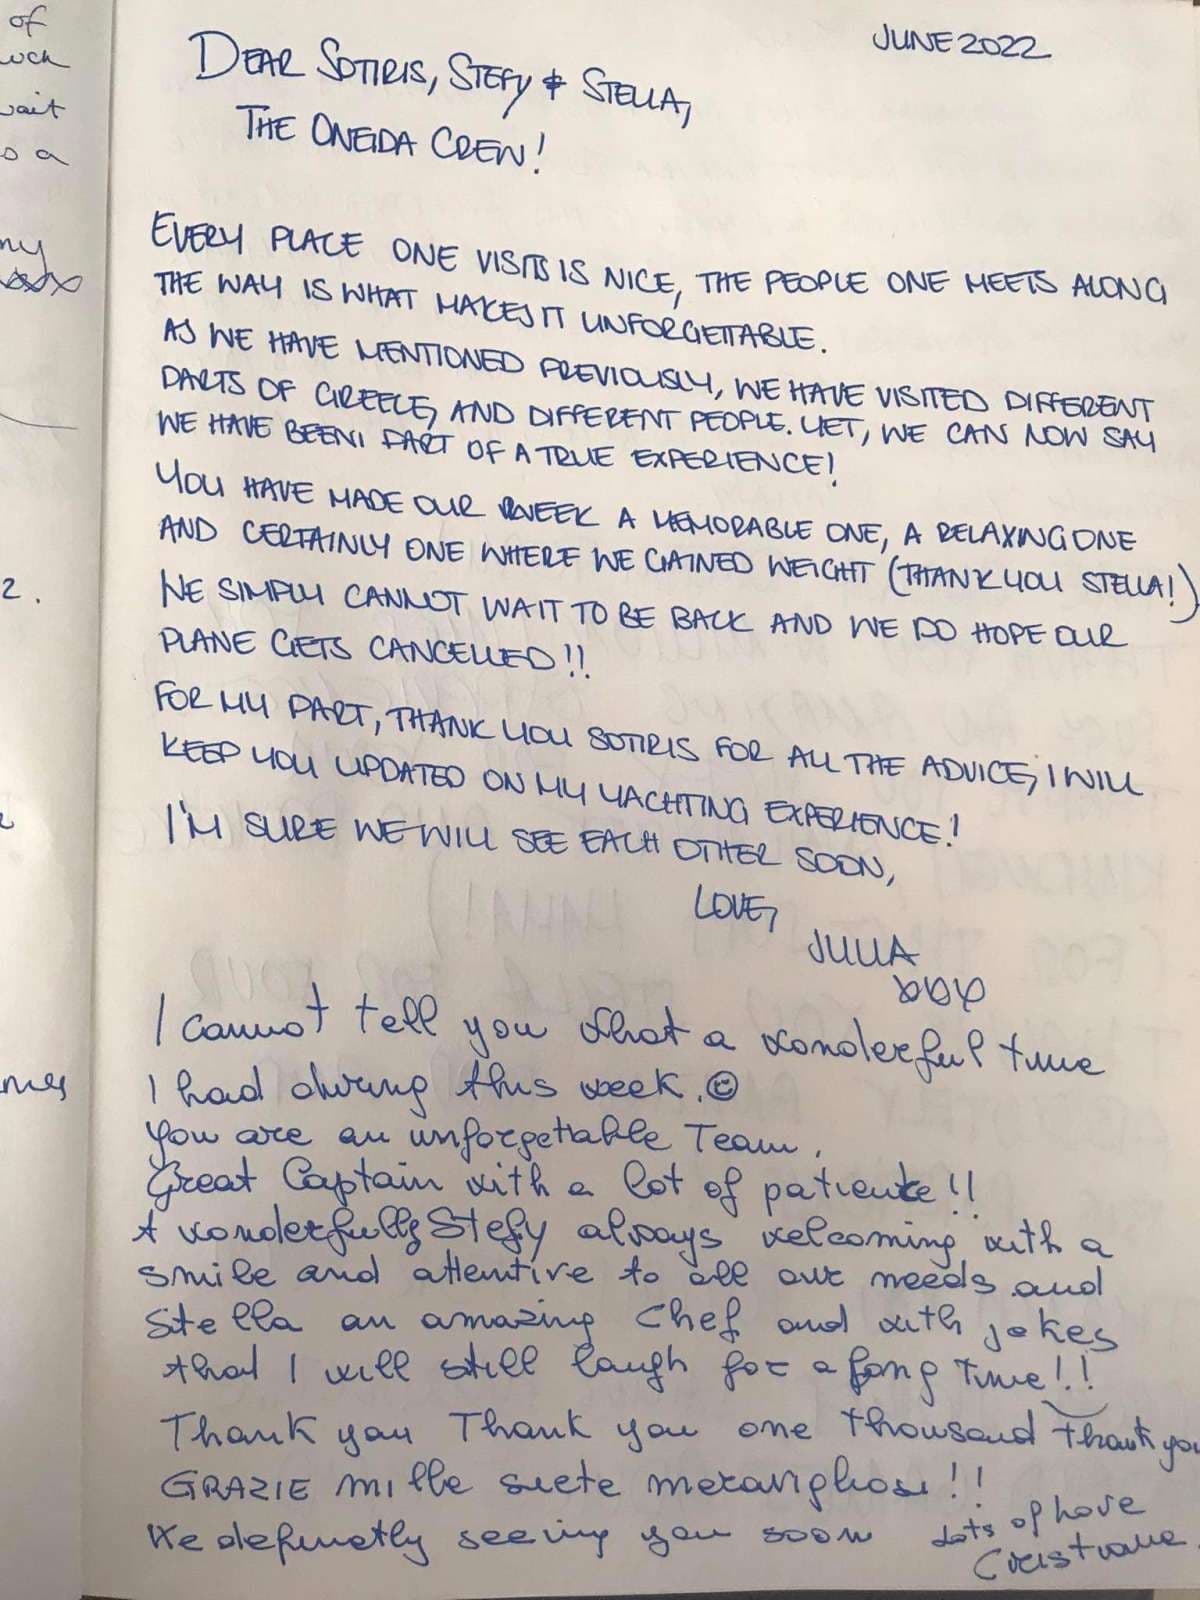 of
wait
so a
my
2.
JUNE 2022
DEAR SOTIRIS, STEFY & STELLA,
THE ONEIDA CREW!
EVERY PLACE ONE VISITS IS NICE, THE PEOPLE ONE MEETS ALONG
THE WAY IS WHAT MAKES IT UNFORGETTABLE.
AS WE HAVE MENTIONED PREVIOUSLY, WE HAVE VISITED DIFFERENT
PARTS OF GREECE, AND DIFFERENT PEOPLE. YET, WE CAN NOW SAY
WE HAVE BEEN PART OF A TRUE EXPERIENCE!
YOU HAVE MADE OUR WEEK A MEMORABLE ONE, A RELAXING ONE
AND CERTAINLY ONE WHERE WE GAINED WEIGHT (THANK YOU STELLA!)
WE SIMPLY CANNOT WAIT TO BE BACK AND WE DO HOPE OUR
PLANE GETS CANCELLED!!
FOR MY PART, THANK YOU SOTIRIS FOR ALL THE ADVICE, I WILL
KEEP YOU UPDATED ON MY YACHTING EXPERIENCE!
I'M SURE WE WILL SEE EACH OTHER SOON,
LOVE,
JULIA
xxx
I cannot tell you what a wonderful time
I had during this week. ☺
You are an unforgettable Team.
Great Captain with a lot of patience!!
A wonderfully Stefy always welcoming with a
smile and attentive to all our needs and
Stella an amazing Chef and with jokes
that I will still laugh for a long time!!
Thank you Thank you one thousand thank you
GRAZIE mille siete meravigliosi!!
We definetly seeing you soon
Lots of love
Cristiane